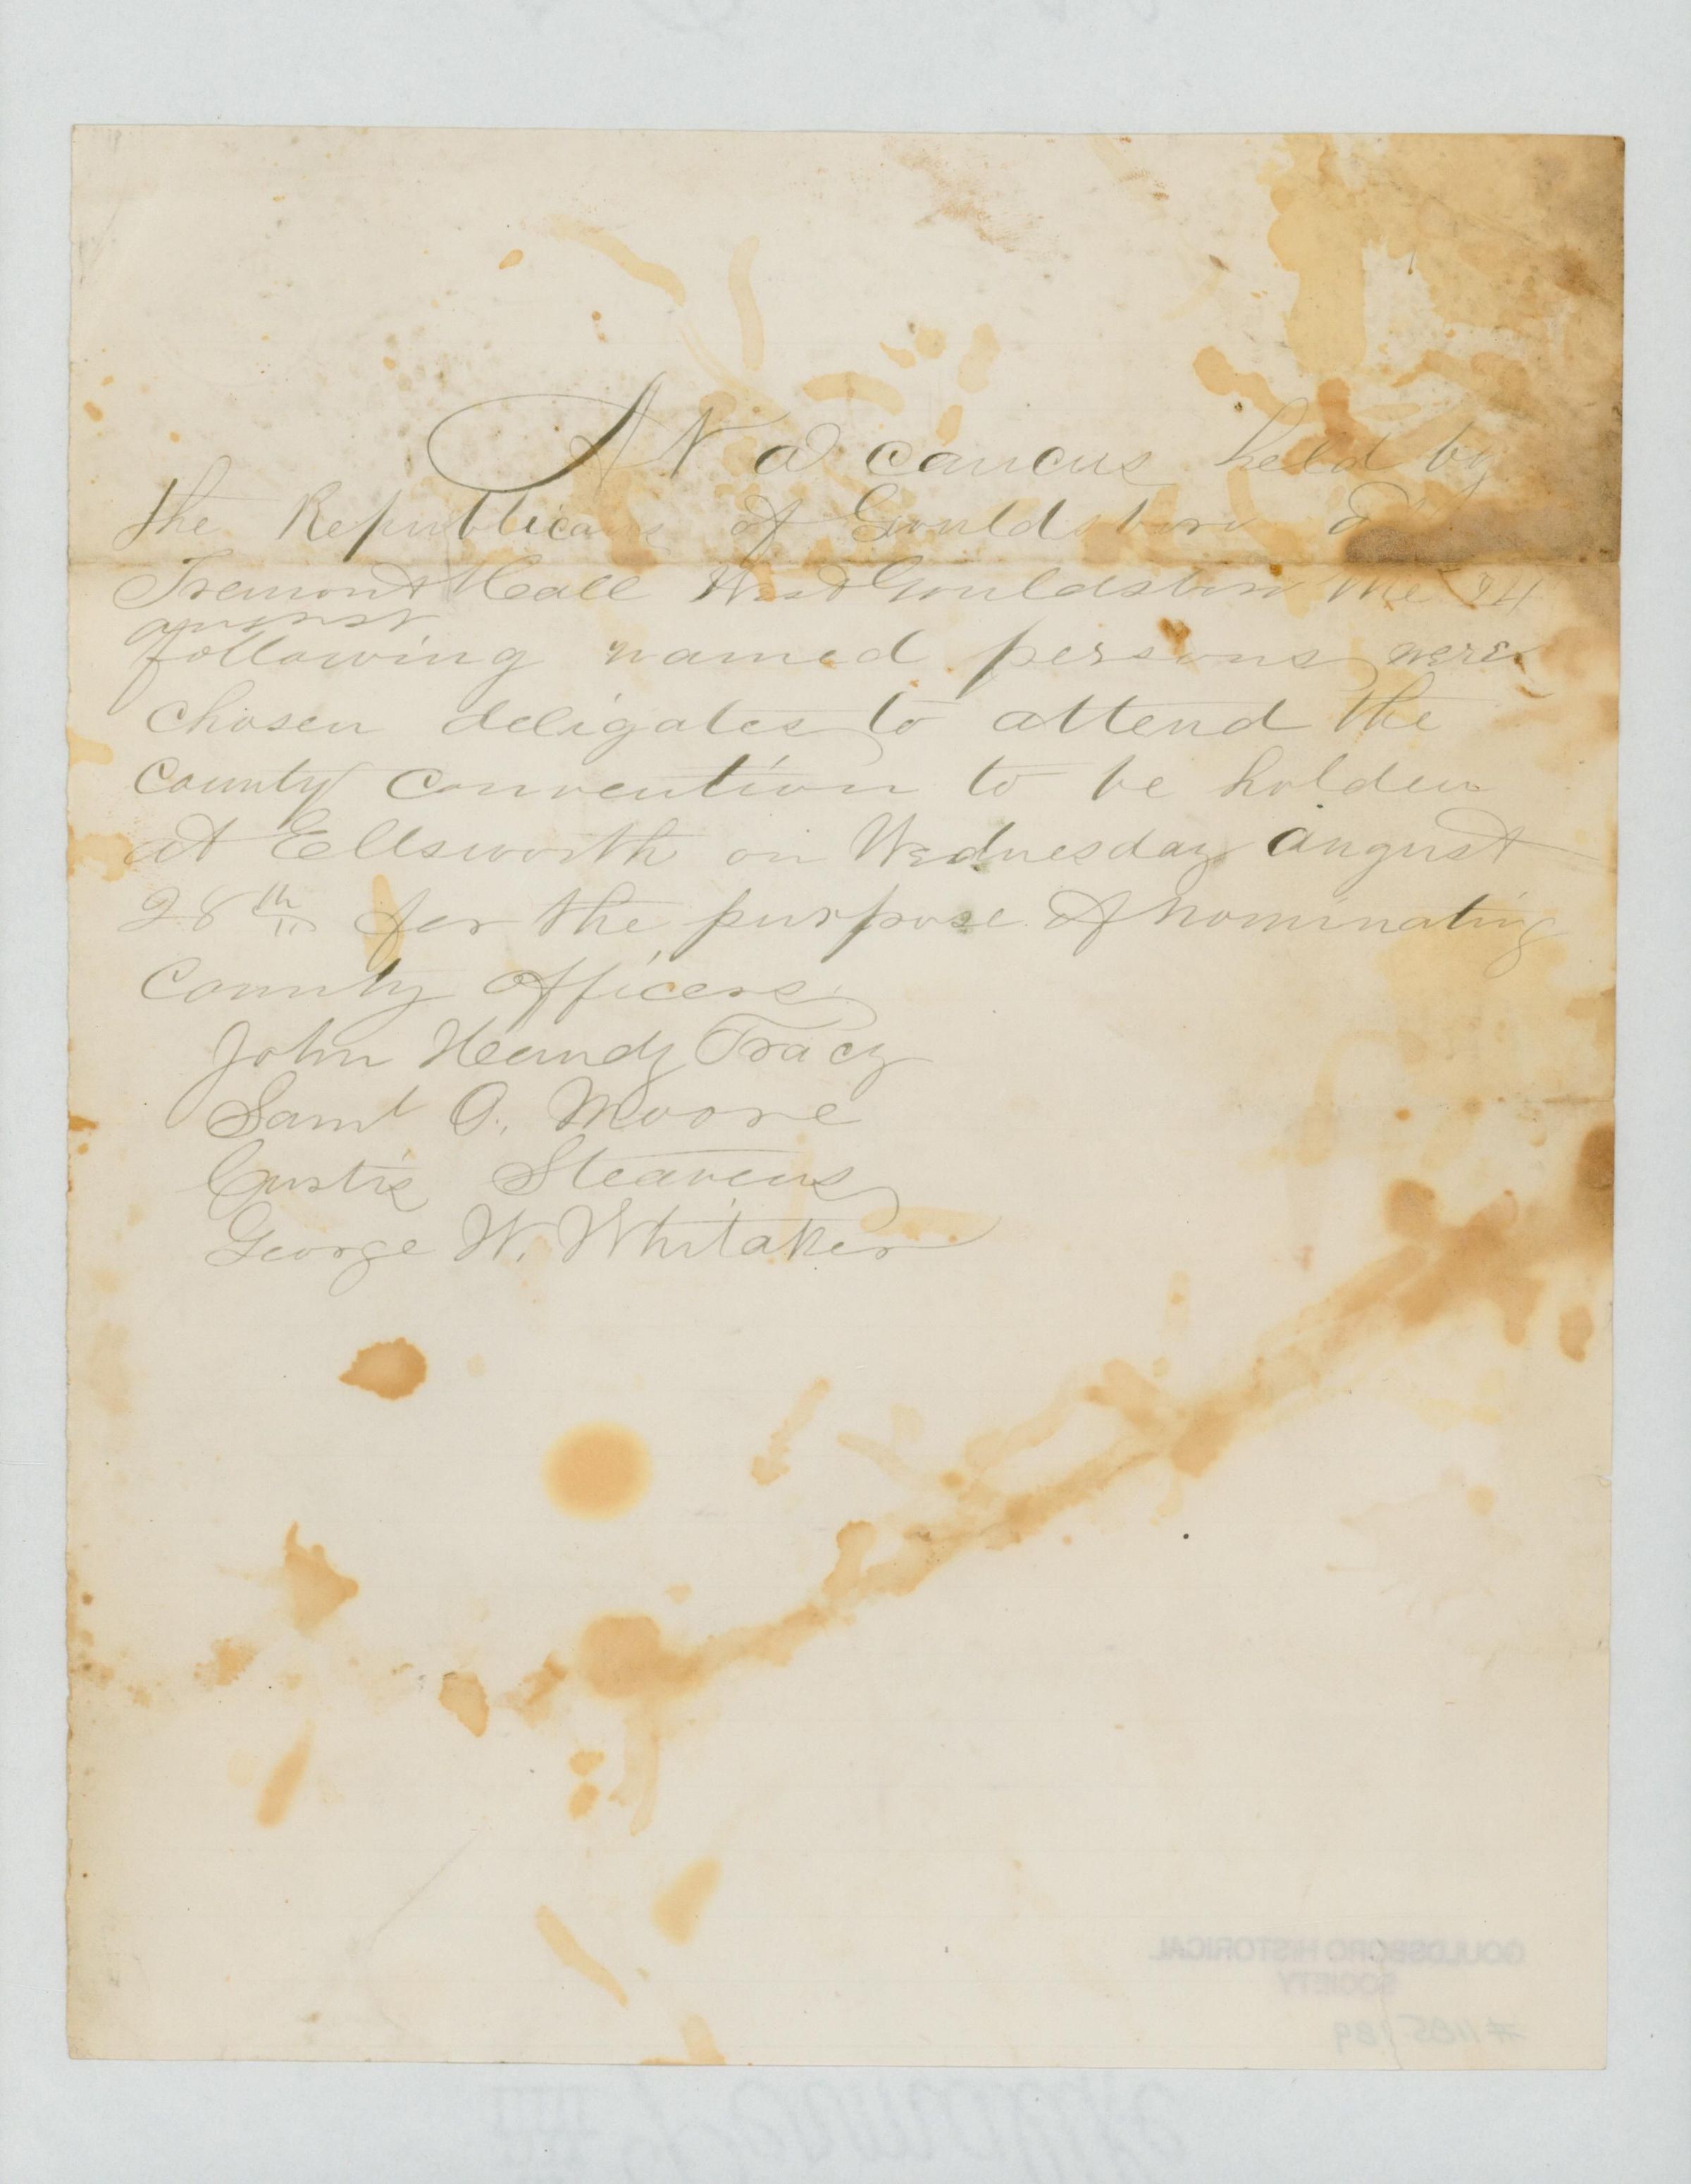 At a caucus held by
the Republicans of Gouldsboro
Tremont Hall West Gouldsboro the 24
august
following named persons were
chosen deligates to attend the
County Convention to be holden
at Ellsworth on Wednesday August
28th for the purpose of nominating
County officers.
John Heandy Tracy
Saml O. Moore
Curtis Steavens
George W. Whitaker
GOULDSBORO HISTORICAL
SOCIETY